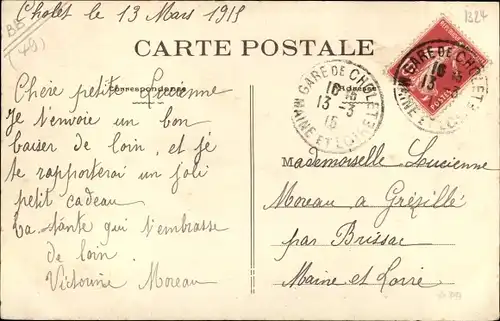 Cholet le 13 Mars 1915
1324
BB
(49)
CARTE POSTALE
Correspondance
Adresse
GARE DE CHOLET
16 15
13 - 3
15
MAINE ET LOIRE
Chère petite Lucienne
Je t'envoie un bon
baiser de loin, et je
te rapporterai un joli
petit cadeau
Ta tante qui t'embrasse
de loin.
Victorine Moreau
Mademoiselle Lucienne
Moreau à Grézillé
par Brissac
Maine et Loire